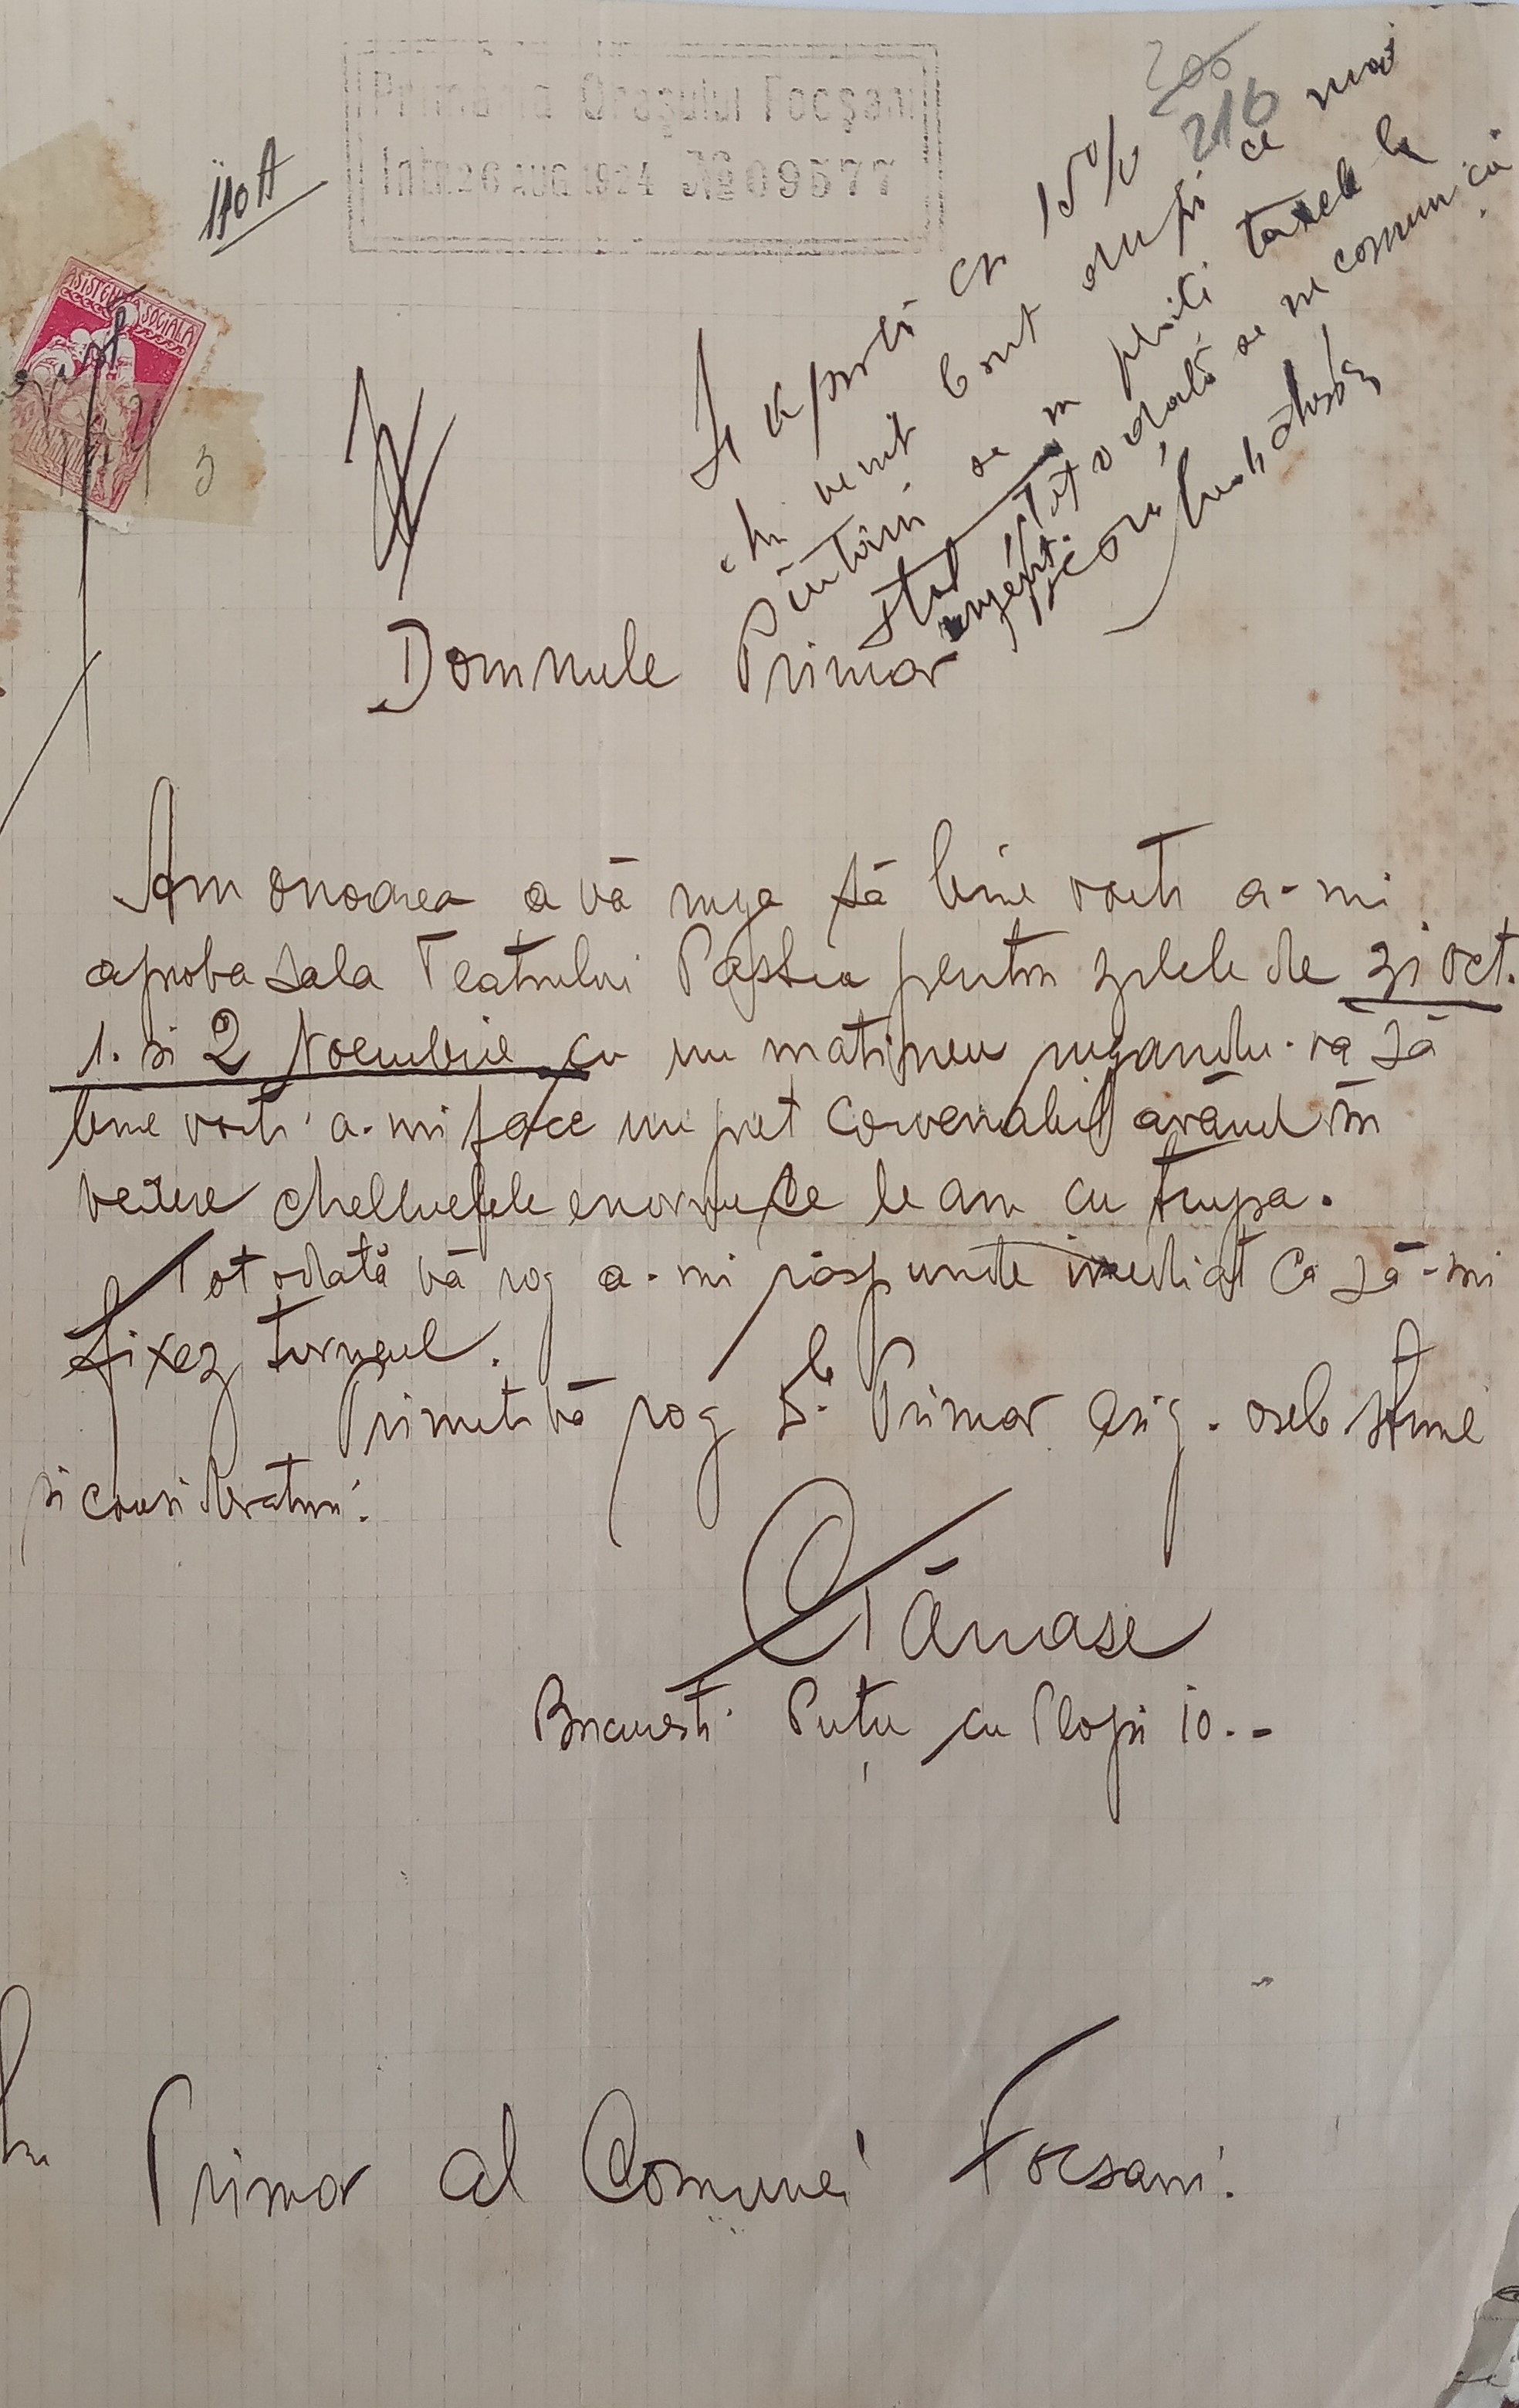 Primăria Orașului Focșani
Intr. 26 AUG 1924 № 09577
110 A
200
216
ASISTENȚA SOCIALA
3
Se aprobă cu 15%
din venit brut după ce mai
întâiu se va plăti taxele la
stat
Tot odată se va comunica
urgent.
Domnule Primar
Am onoarea a vă ruga să bine voiti a-mi
aproba sala Teatrului Pastia pentru zilele de 31 Oct.
1. si 2 Noembrie cu un matineu rugandu-vă să
bine voiti a-mi face un pret convenabil având în
vedere cheltuelele enorme ce le am cu trupa.
Tot odată vă rog a-mi răspunde imediat ca să-mi
fixez turneul.
Primiti vă rog D-le Primar asig. osebite stime
si consideratiuni.
CTănase
Bucuresti Puțu cu Plopi 10.-
Primar al Comunei Focsani.